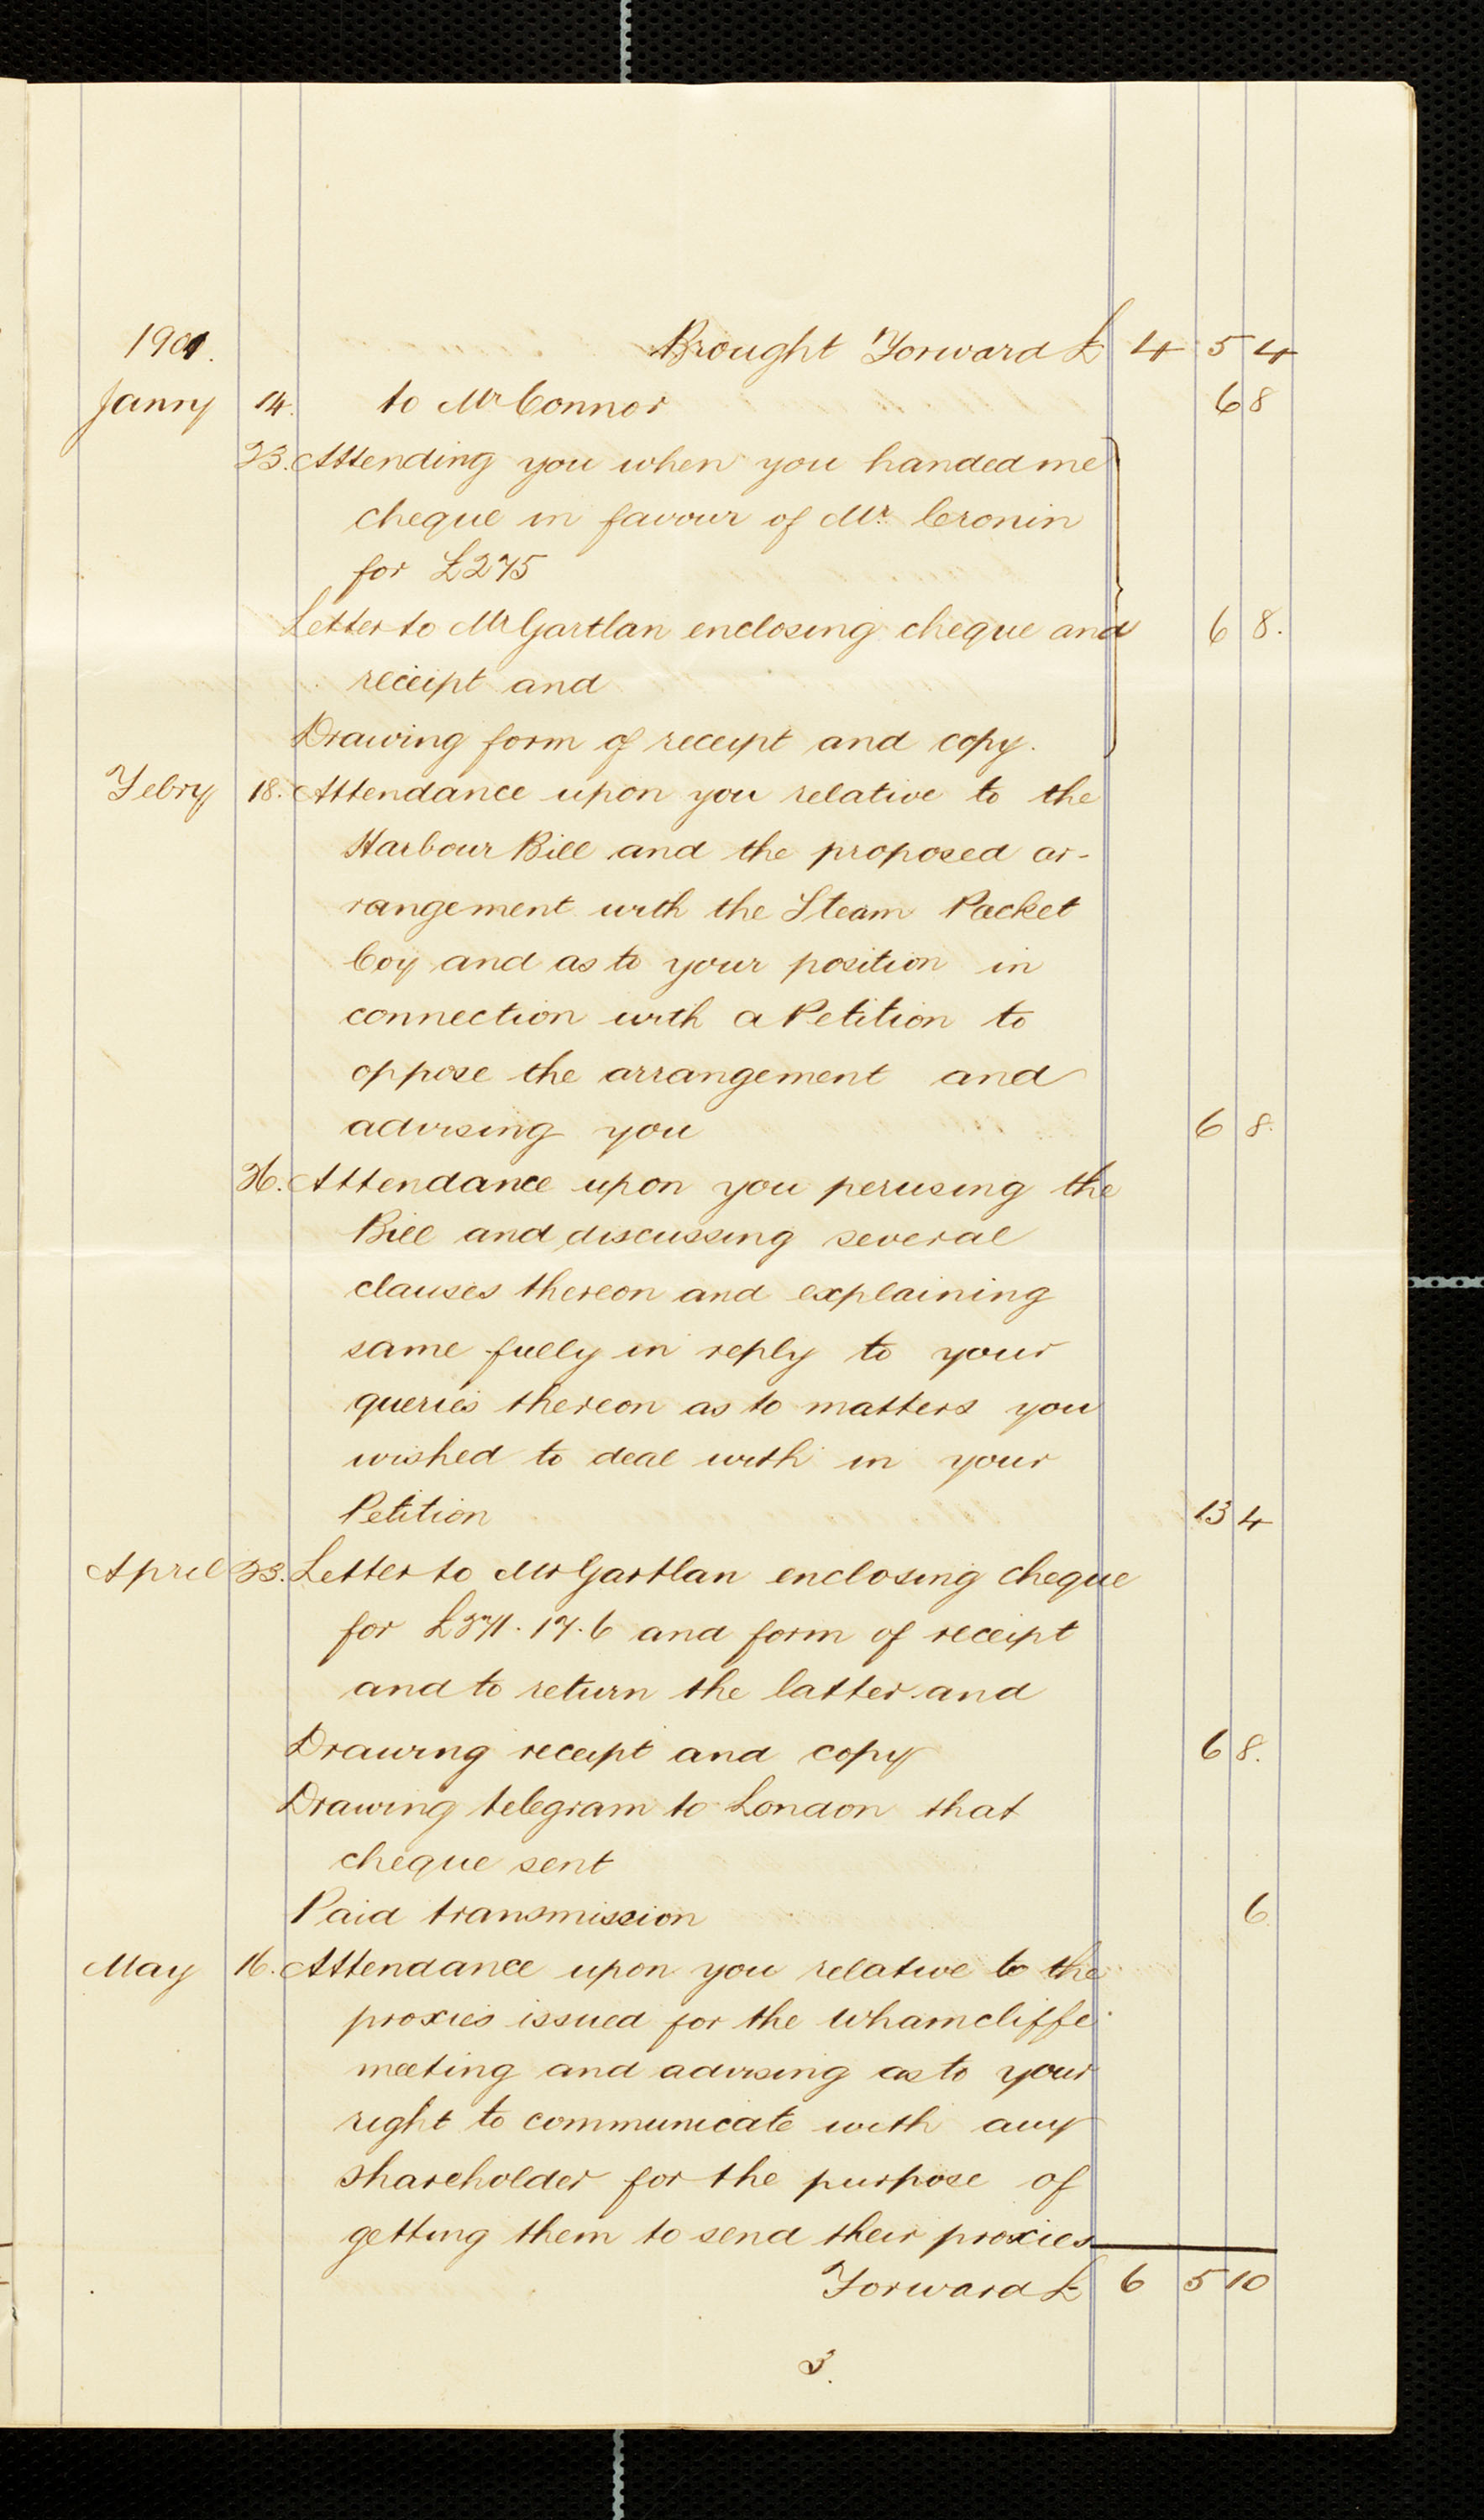 1901. Brought Forward £ 4 5 4
Janry 14. to Mr Connor 6 8
23. Attending you when you handed me
cheque in favour of Mr. Cronin
for £275
Letter to Mr Gartlan enclosing cheque and 6 8.
receipt and
Drawing form of receipt and copy.
Febry 18. Attendance upon you relative to the
Harbour Bill and the proposed ar-
rangement with the Steam Packet
Coy and as to your position in
connection with a Petition to
oppose the arrangement and
advising you 6 8.
26. Attendance upon you perusing the
Bill and discussing several
clauses thereon and explaining
same fully in reply to your
queries thereon as to matters you
wished to deal with in your
Petition 13 4
April 23. Letter to Mr Gartlan enclosing cheque
for £271.17.6 and form of receipt
and to return the latter and
Drawing receipt and copy 6 8.
Drawing telegram to London that
cheque sent
Paid transmission 6
May 16. Attendance upon you relative to the
proxies issued for the Wharncliffe
meeting and advising as to your
right to communicate with any
shareholder for the purpose of
getting them to send their proxies
Forward £ 6 5 10
3.